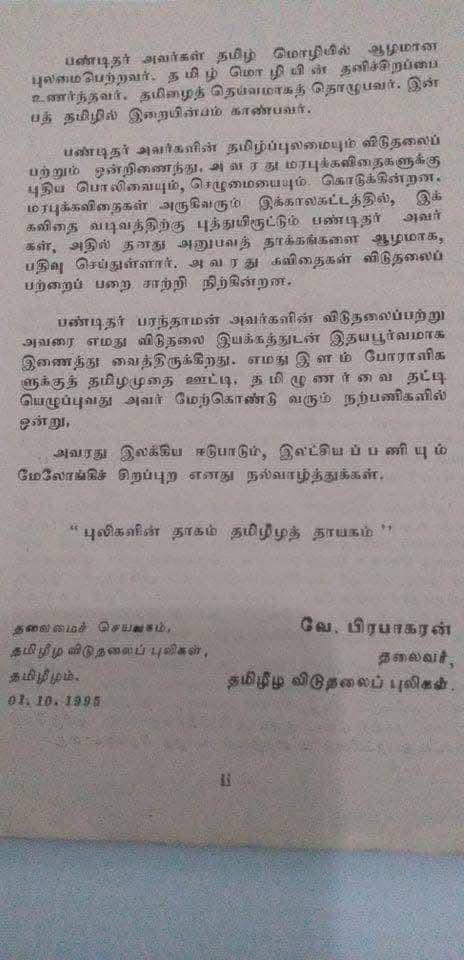 பண்டிதர் அவர்கள் தமிழ் மொழியில் ஆழமான
புலமைபெற்றவர். தமிழ் மொழியின் தனிச்சிறப்பை
உணர்ந்தவர். தமிழைத் தெய்வமாகத் தொழுபவர். இன்
பத் தமிழில் இறையின்பம் காண்பவர்.
பண்டிதர் அவர்களின் தமிழ்ப்புலமையும் விடுதலைப்
பற்றும் ஒன்றிணைந்து அவரது மரபுக்கவிதைகளுக்கு
புதிய பொலிவையும், செழுமையையும் கொடுக்கின்றன.
மரபுக்கவிதைகள் அருகிவரும் இக்காலகட்டத்தில், இக்
கவிதை வடிவத்திற்கு புத்துயிரூட்டும் பண்டிதர் அவர்
கள், அதில் தனது அனுபவத் தாக்கங்களை ஆழமாக,
பதிவு செய்துள்ளார். அவரது கவிதைகள் விடுதலைப்
பற்றைப் பறை சாற்றி நிற்கின்றன.
பண்டிதர் பரந்தாமன் அவர்களின் விடுதலைப்பற்று
அவரை எமது விடுதலை இயக்கத்துடன் இதயபூர்வமாக
இணைத்து வைத்திருக்கிறது. எமது இளம் போராளிக
ளுக்குத் தமிழமுதை ஊட்டி, தமிழுணர்வை தட்டி
யெழுப்புவது அவர் மேற்கொண்டு வரும் நற்பணிகளில்
ஒன்று,
அவரது இலக்கிய ஈடுபாடும், இலட்சியப்பணியும்
மேலோங்கிச் சிறப்புற எனது நல்வாழ்த்துக்கள்.
“ புலிகளின் தாகம் தமிழீழத் தாயகம் ”
தலைமைச் செயலகம்,
தமிழீழ விடுதலைப் புலிகள்,
தமிழீழம்.
01.10.1995
வே. பிரபாகரன்
தலைவர்,
தமிழீழ விடுதலைப் புலிகள்.
ii